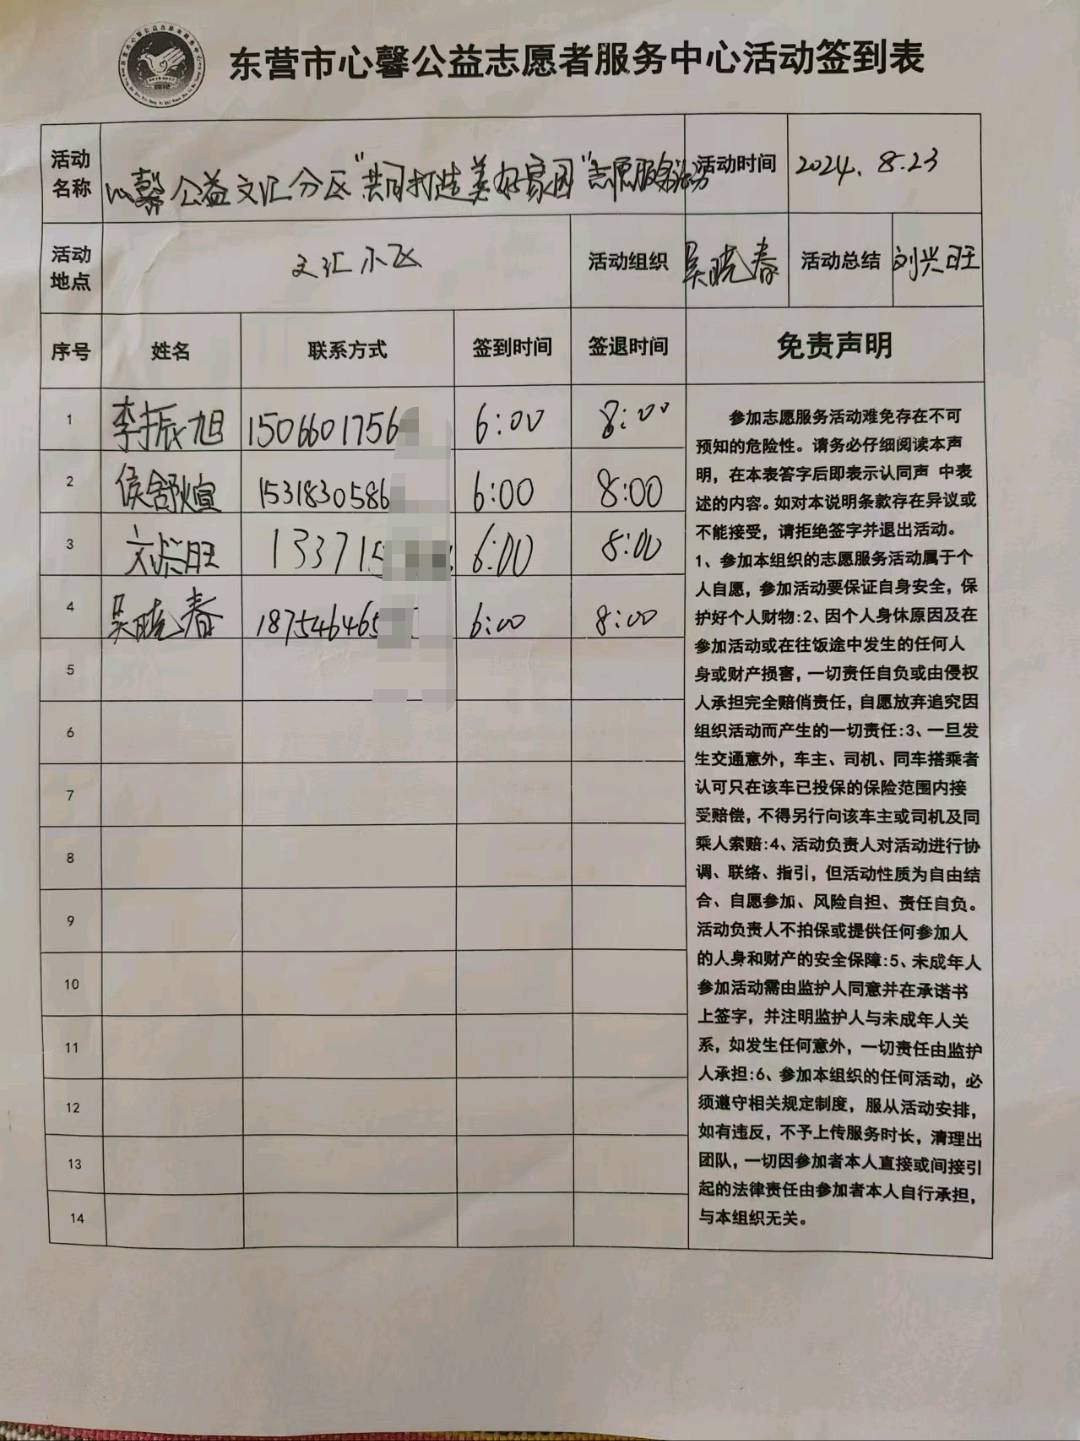 东营市心馨公益志愿者服务中心活动签到表
活动名称 心馨公益文汇分区"共同打造美好家园"志愿服务活动 活动时间 2024.8.23
活动地点 文汇小区 活动组织 吴晓春 活动总结 刘兴旺
序号 姓名 联系方式 签到时间 签退时间 免责声明
1 李振旭 1506601756 6:00 8:00
2 侯舒煊 1531830586 6:00 8:00
3 刘兴旺 13371 6:00 8:00
4 吴晓春 187546465 6:00 8:00
5
6
7
8
9
10
11
12
13
14
参加志愿服务活动难免存在不可
预知的危险性。请务必仔细阅读本声
明，在本表答字后即表示认同声 中表
述的内容。如对本说明条款存在异议或
不能接受，请拒绝签字并退出活动。
1、参加本组织的志愿服务活动属于个
人自愿，参加活动要保证自身安全，保
护好个人财物:2、因个人身休原因及在
参加活动或在往饭途中发生的任何人
身或财产损害，一切责任自负或由侵权
人承担完全赔俏责任，自愿放弃追究因
组织活动而产生的一切责任:3、一旦发
生交通意外，车主、司机、同车搭乘者
认可只在该车已投保的保险范围内接
受赔偿，不得另行向该车主或司机及同
乘人索赔:4、活动负责人对活动进行协
调、联络、指引，但活动性质为自由结
合、自愿参加、风险自担、责任自负。
活动负责人不拍保或提供任何参加人
的人身和财产的安全保障:5、未成年人
参加活动需由监护人同意并在承诺书
上签字，并注明监护人与未成年人关
系，如发生任何意外，一切责任由监护
人承担:6、参加本组织的任何活动，必
须遵守相关规定制度，服从活动安排，
如有违反，不予上传服务时长，清理出
团队，一切因参加者本人直接或间接引
起的法律责任由参加者本人自行承担，
与本组织无关。